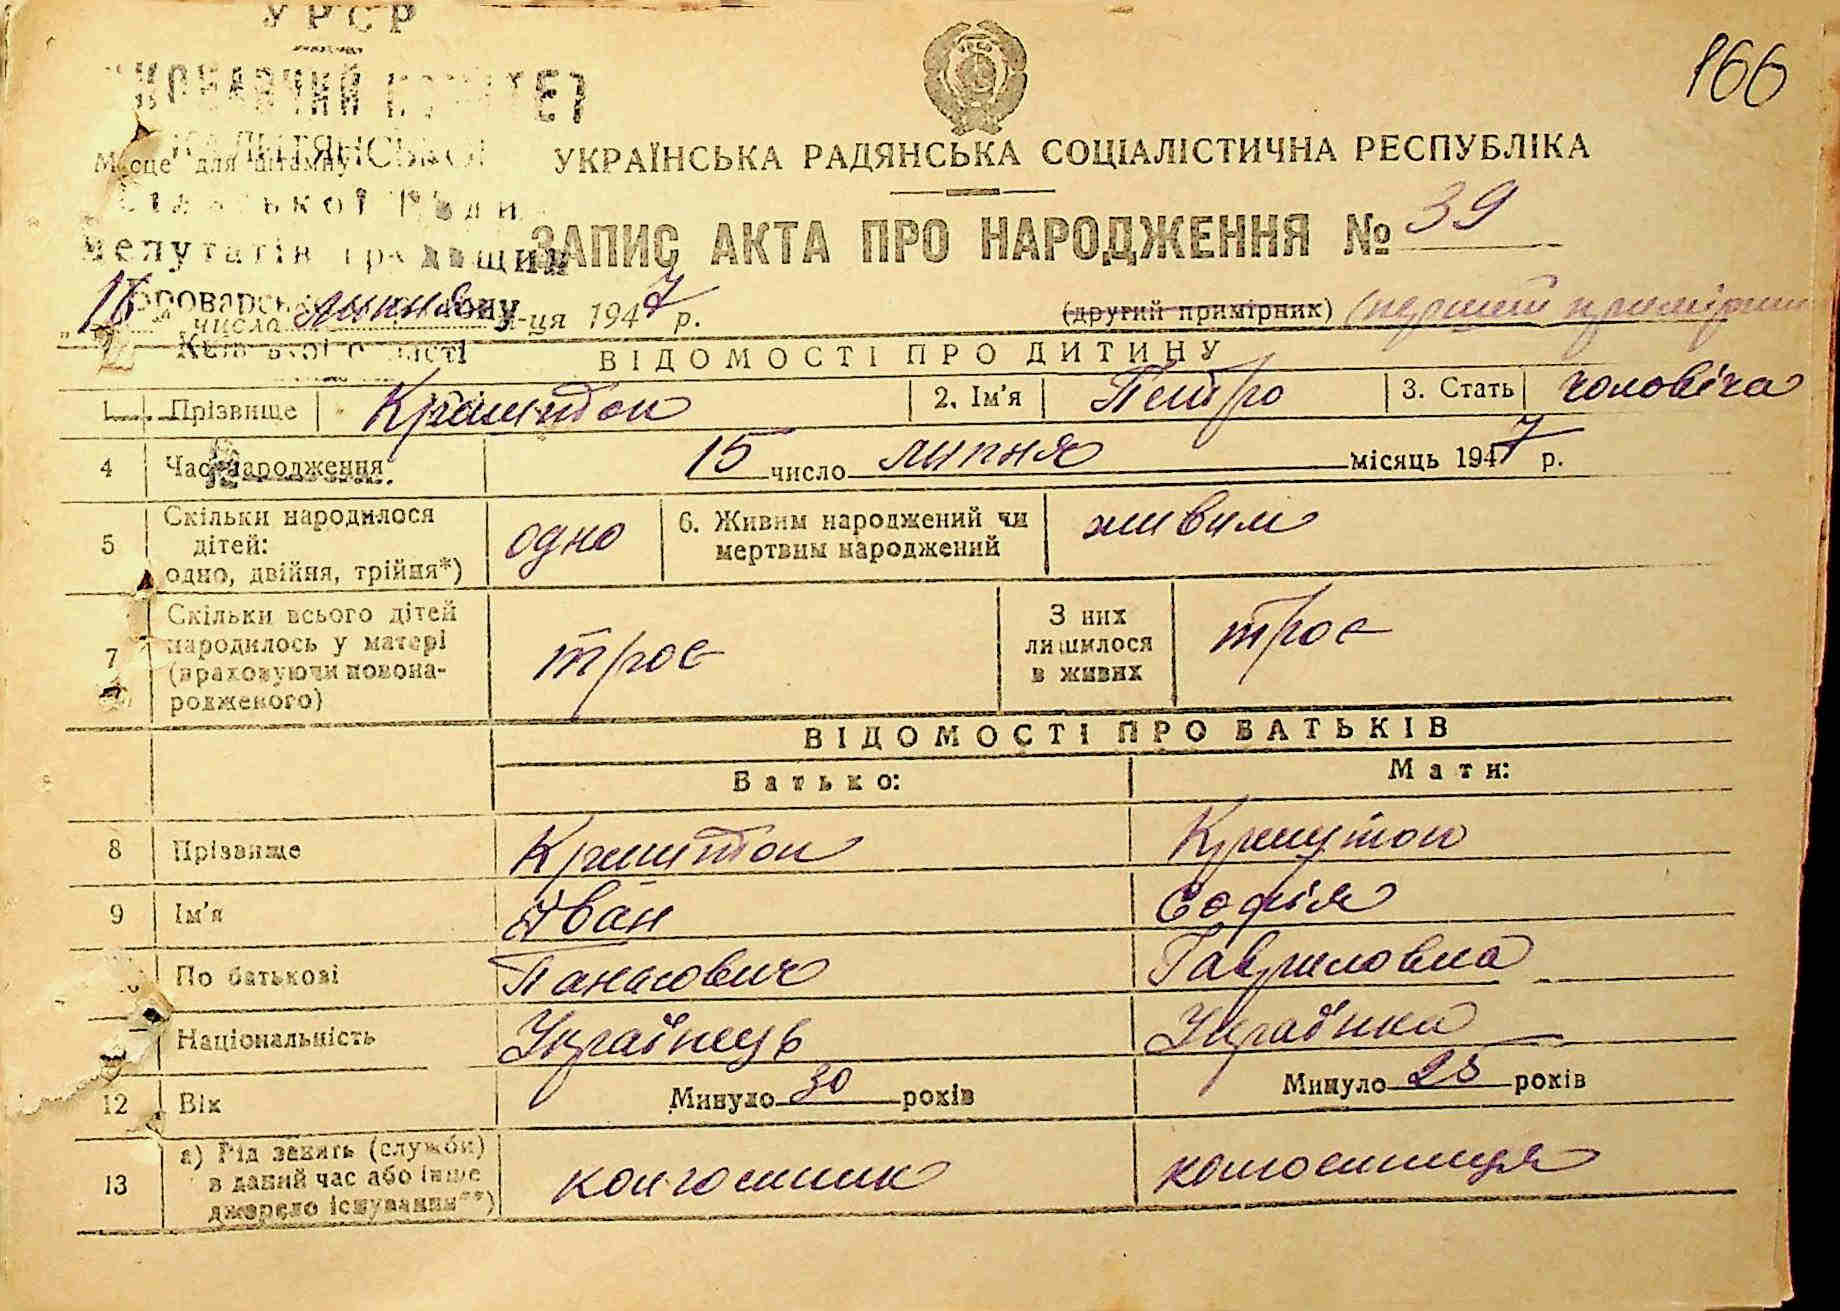 УРСР
166
КАЛИТЯНСЬКОЇ
Місце для штампу
УКРАЇНСЬКА РАДЯНСЬКА СОЦІАЛІСТИЧНА РЕСПУБЛІКА
Сільської Ради
ЗАПИС АКТА ПРО НАРОДЖЕННЯ № 39
Депутатів трудящих
числа липня м-ця 1947 р.
(другий примірник) (перший примірник
ВІДОМОСТІ ПРО ДИТИНУ
1 Прізвище Криштоп 2. Ім'я Петро 3. Стать чоловіча
4 Час народження. 15 число липня місяць 1947 р.
5 Скільки народилося дітей: одно, двійня, трійня*) одно 6. Живим народжений чи мертвим народжений живим
7 Скільки всього дітей народилось у матері (враховуючи новонародженого) троє З них лишилося в живих троє
ВІДОМОСТІ ПРО БАТЬКІВ
Батько: Мати:
8 Прізвище Криштоп Криштоп
9 Ім'я Іван Софія
По батькові Панасович Гавриловна
Національність Українець Українка
12 Вік Минуло 30 років Минуло 25 років
13 а) Рід занять (служби) в даний час або інше джерело існування**) колгоспник колгоспниця